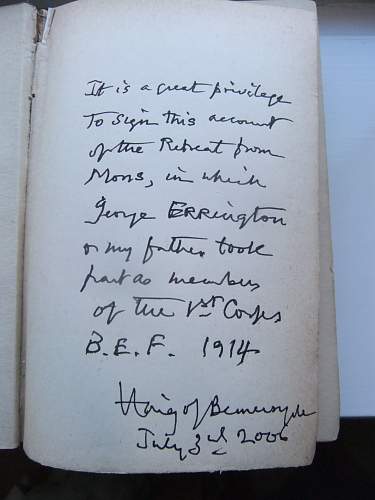 It is a great privilege
to sign this account
of the Retreat from
Mons, in which
George ERRINGTON
or my father took
part as members
of the 1st Corps
B.E.F. 1914
Haig of Bemersyde
July 3rd 2006